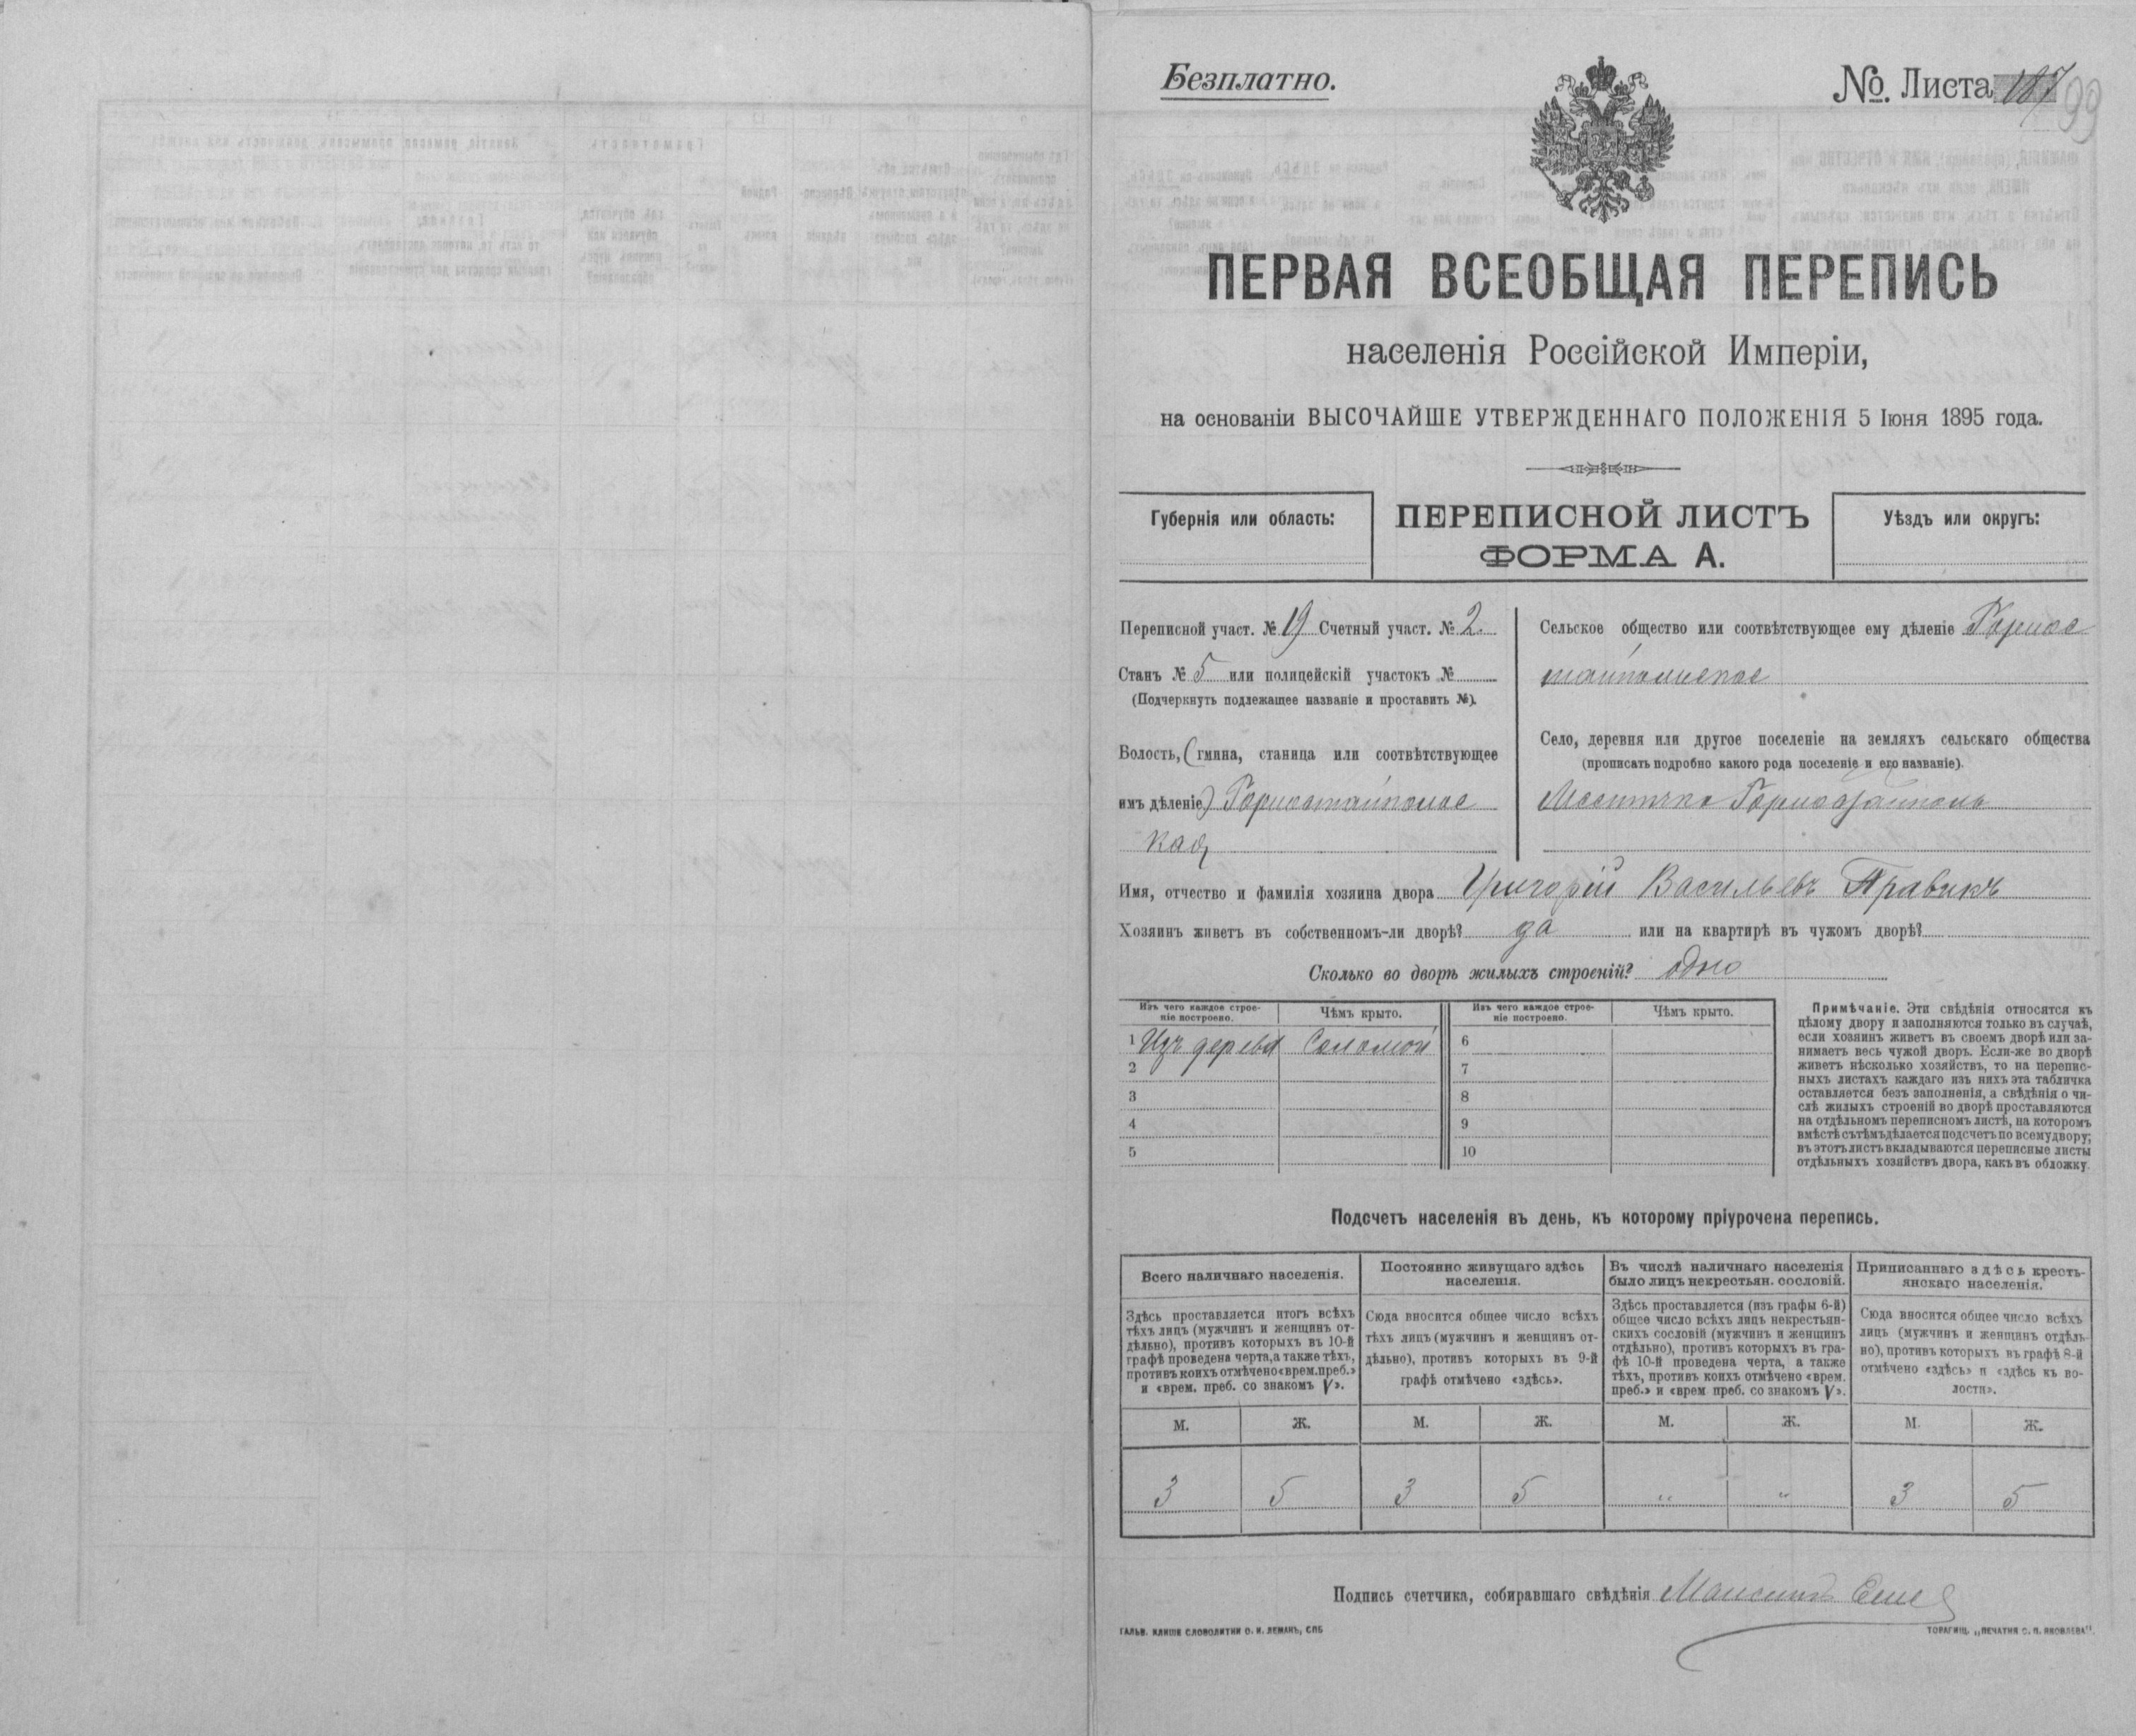 Безплатно.
№. Листа 187
99
ПЕРВАЯ ВСЕОБЩАЯ ПЕРЕПИСЬ
населенія Россійской Имперіи,
на основаніи ВЫСОЧАЙШЕ УТВЕРЖДЕННАГО ПОЛОЖЕНІЯ 5 Іюня 1895 года.
Губернія или область:
ПЕРЕПИСНОЙ ЛИСТЪ
ФОРМА А.
Уѣздъ или округъ:
Переписной участ. № 19 Счетный участ. № 2.
Станъ № 5 или полицейскій участокъ №
(Подчеркнуть подлежащее названіе и проставить №).
Волость, (гмина, станица или соотвѣтствующее
имъ дѣленіе) Горностайпольс
кая
Сельское общество или соотвѣтствующее ему дѣленіе Горнос
тайпольское
Село, деревня или другое поселеніе на земляхъ сельскаго общества
(прописать подробно какого рода поселеніе и его названіе).
Местечко Горностайполь
Имя, отчество и фамилія хозяина двора Григорій Васильевъ Правикъ
Хозяинъ живетъ въ собственномъ-ли дворѣ? да или на квартирѣ въ чужомъ дворѣ?
Сколько во дворѣ жилыхъ строеній? одно
Изъ чего каждое строе-
ніе построено.
Чѣмъ крыто.
Изъ чего каждое строе-
ніе построено.
Чѣмъ крыто.
1 Изъ дерева Соломой 6
2 7
3 8
4 9
5 10
Примѣчаніе. Эти свѣдѣнія относятся къ
цѣлому двору и заполняются только въ случаѣ,
если хозяинъ живетъ въ своемъ дворѣ или за-
нимаетъ весь чужой дворъ. Если-же во дворѣ
живетъ нѣсколько хозяйствъ, то на перепис-
ныхъ листахъ каждаго изъ нихъ эта табличка
оставляется безъ заполненія, а свѣдѣнія о чи-
слѣ жилыхъ строеній во дворѣ проставляются
на отдѣльномъ переписномъ листѣ, на которомъ
вмѣстѣ съ тѣмъ дѣлается подсчетъ по всему двору;
въ этотъ листъ вкладываются переписные листы
отдѣльныхъ хозяйствъ двора, какъ въ обложку.
Подсчетъ населенія въ день, къ которому пріурочена перепись.
Всего наличнаго населенія.
Здѣсь проставляется итогъ всѣхъ
тѣхъ лицъ (мужчинъ и женщинъ от-
дѣльно), противъ которыхъ въ 10-й
графѣ проведена черта, а также тѣхъ,
противъ коихъ отмѣчено «врем. преб.»
и «врем. преб. со знакомъ V».
Постоянно живущаго здѣсь
населенія.
Сюда вносится общее число всѣхъ
тѣхъ лицъ (мужчинъ и женщинъ от-
дѣльно), противъ которыхъ въ 9-й
графѣ отмѣчено «здѣсь».
Въ числѣ наличнаго населенія
было лицъ некрестьян. сословій.
Здѣсь проставляется (изъ графы 6-й)
общее число всѣхъ лицъ некрестьян-
скихъ сословій (мужчинъ и женщинъ
отдѣльно), противъ которыхъ въ гра-
фѣ 10-й проведена черта, а также
тѣхъ, противъ коихъ отмѣчено «врем.
преб.» и «врем преб. со знакомъ V».
Приписаннаго здѣсь кресть-
янскаго населенія.
Сюда вносится общее число всѣхъ
лицъ (мужчинъ и женщинъ отдѣль-
но), противъ которыхъ въ графѣ 8-й
отмѣчено «здѣсь» и «здѣсь къ во-
лости».
М. Ж. М. Ж. М. Ж. М. Ж.
3 5 3 5 " " 3 5
Подпись счетчика, собиравшаго свѣдѣнія
ГАЛЬВ. КЛИШЕ СЛОВОЛИТНИ О. И. ЛЕМАНЪ, СПБ
ТОВАРИЩ. „ПЕЧАТНЯ С. П. ЯКОВЛЕВА".